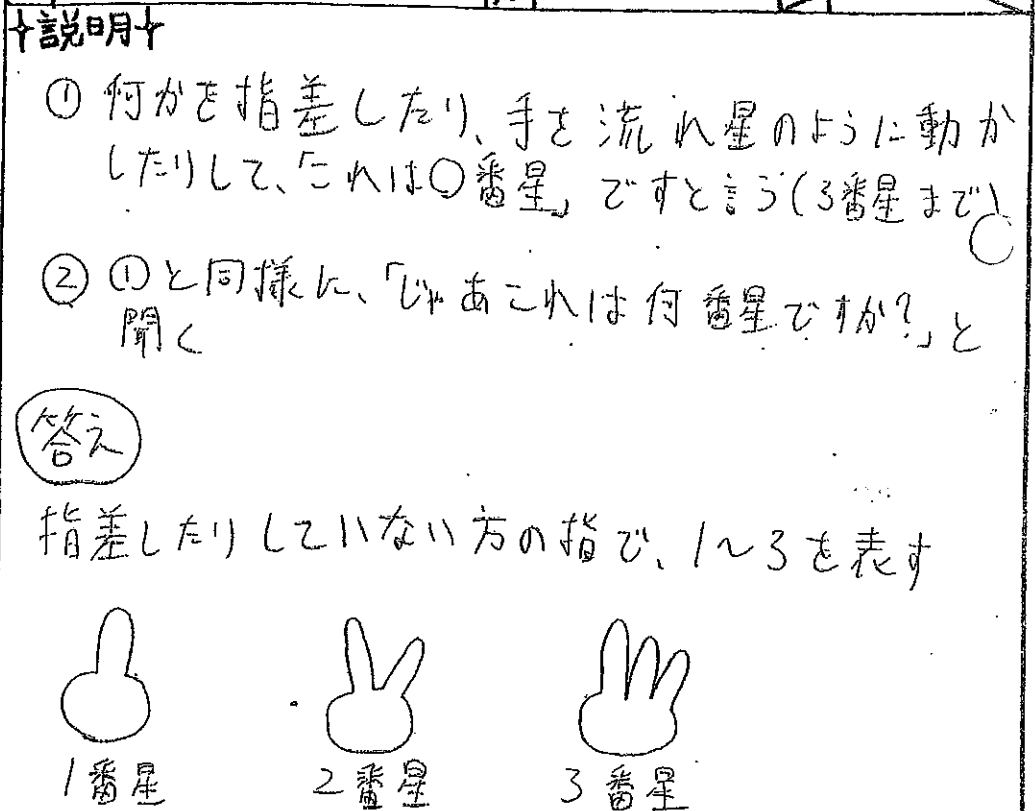 説明
① 何かを指差したり、手を流れ星のように動か
したりして、「これは○番星」ですと言う(3番星まで)
② ①と同様に、「じゃあこれは何番星ですか?」と
聞く
答え
指差したりしていない方の指で、1~3を表す
1番星 2番星 3番星